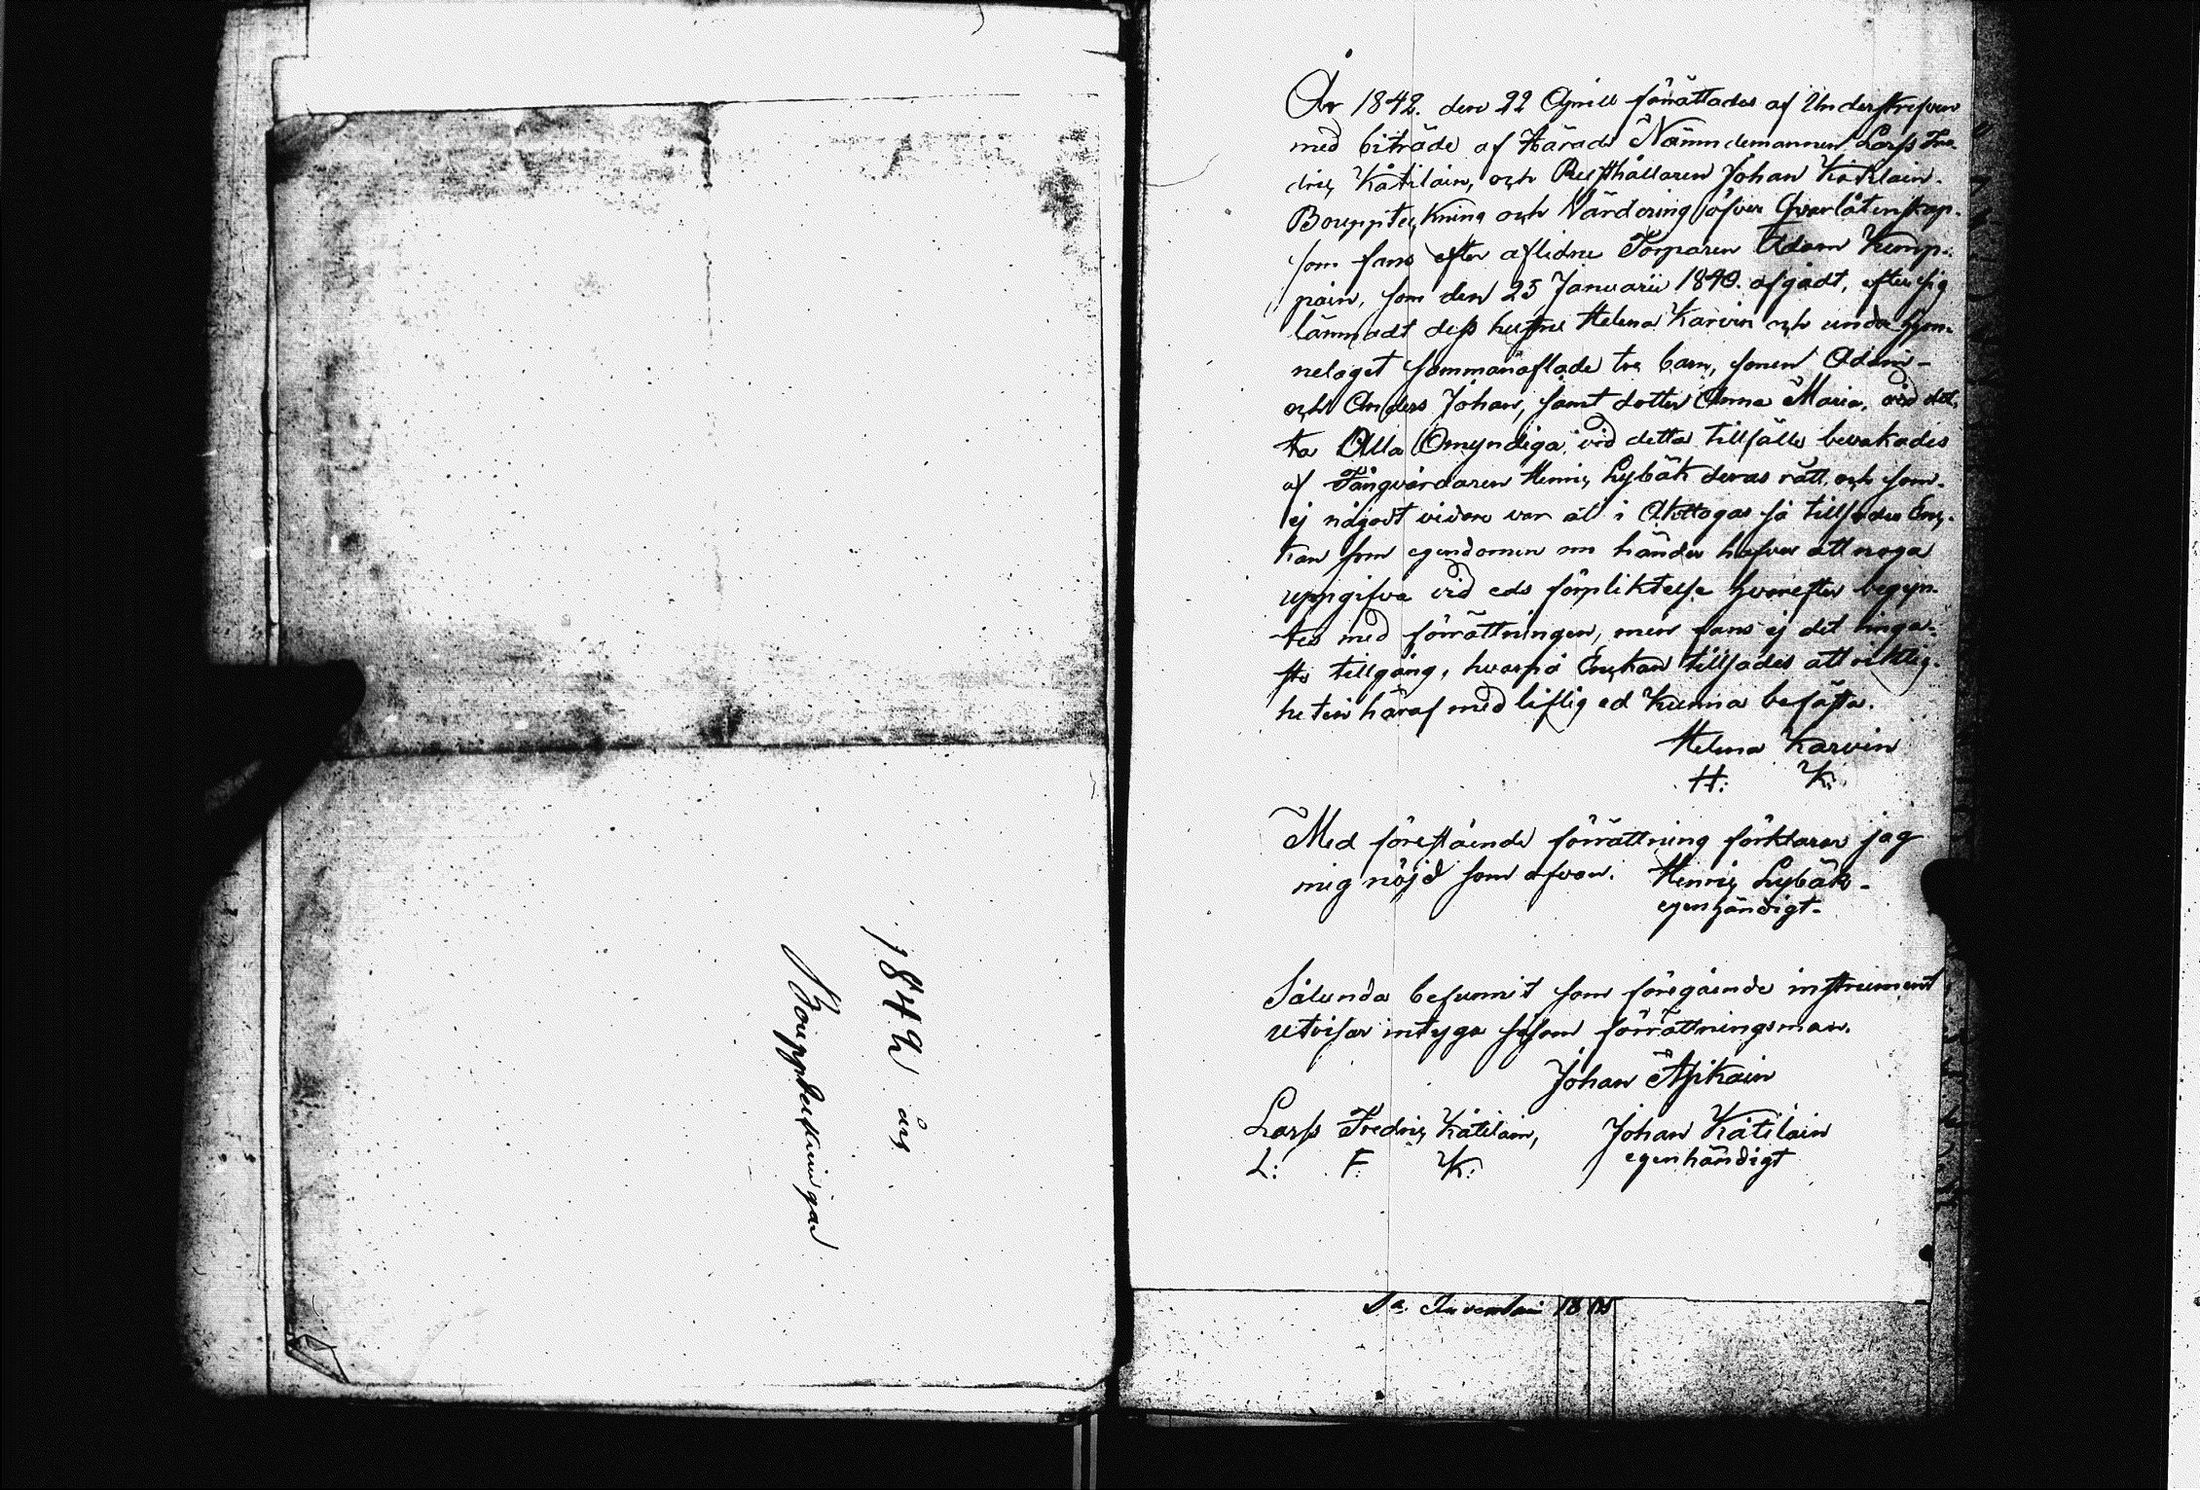 1842 års
Bouppteckningar
År 1842. den 22 Aprill förrättades af Underskrifven
med biträde af Härads Nämndemannen Larss Fre
dric Kätiläin, och Rusthållaren Johan Kätiläin.
Bouppteckning och Värdering öfver Qvarlåtenskap.
som fans efter aflidne Torparen Adam Kemp-
päin, som den 25 Januarii 1840. afgådt, efter sig
lämnadt dess hustru Helena Karvin och under hjon-
nelaget sammanaflade tre barn, sonen Adam -
och Anders Johan, samt dotter Anna Maria, vid det,
ta Alla Omyndiga, vid detta tillfälle bevakades
af Fångvårdaren Henric Lybäk deras rätt. och som.
ej någodt vidare var at i Akttagas så tillsades Enc-
kan som egendomen om händer hafver att noga
uppgifva vid eds förpliktelse hvarefter begyn-
tes med förrättningen, men fans ej det ringa-
ste tillgång, hvarpå Enckan tillsades att riktig-
heten häraf med liflig ed kunna befästa.
Helena Karvin
H: K:
Med föreståënde förrättning förklarar jag
mig nöjd som ofvan. Henric Lybäk -
egenhändigt -
Sålunda befunnit som föregående instrument
utvisar intyga såsom förrättningsman.
Johan Äpikäin
Larss Fredric Kätiläin, Johan Kätiläin
L: F: K: egenhändigt
18